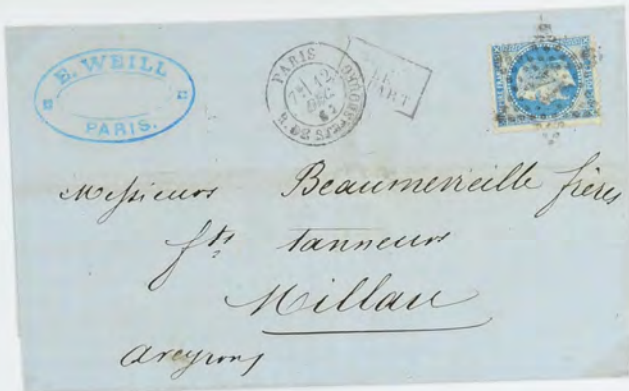 E. WEILL
PARIS.
PARIS
7E/ 12
DEC.
R. DE STRASBOURG
Messieurs Beaumevieille frères
fts tanneurs
Millau
Aveyron